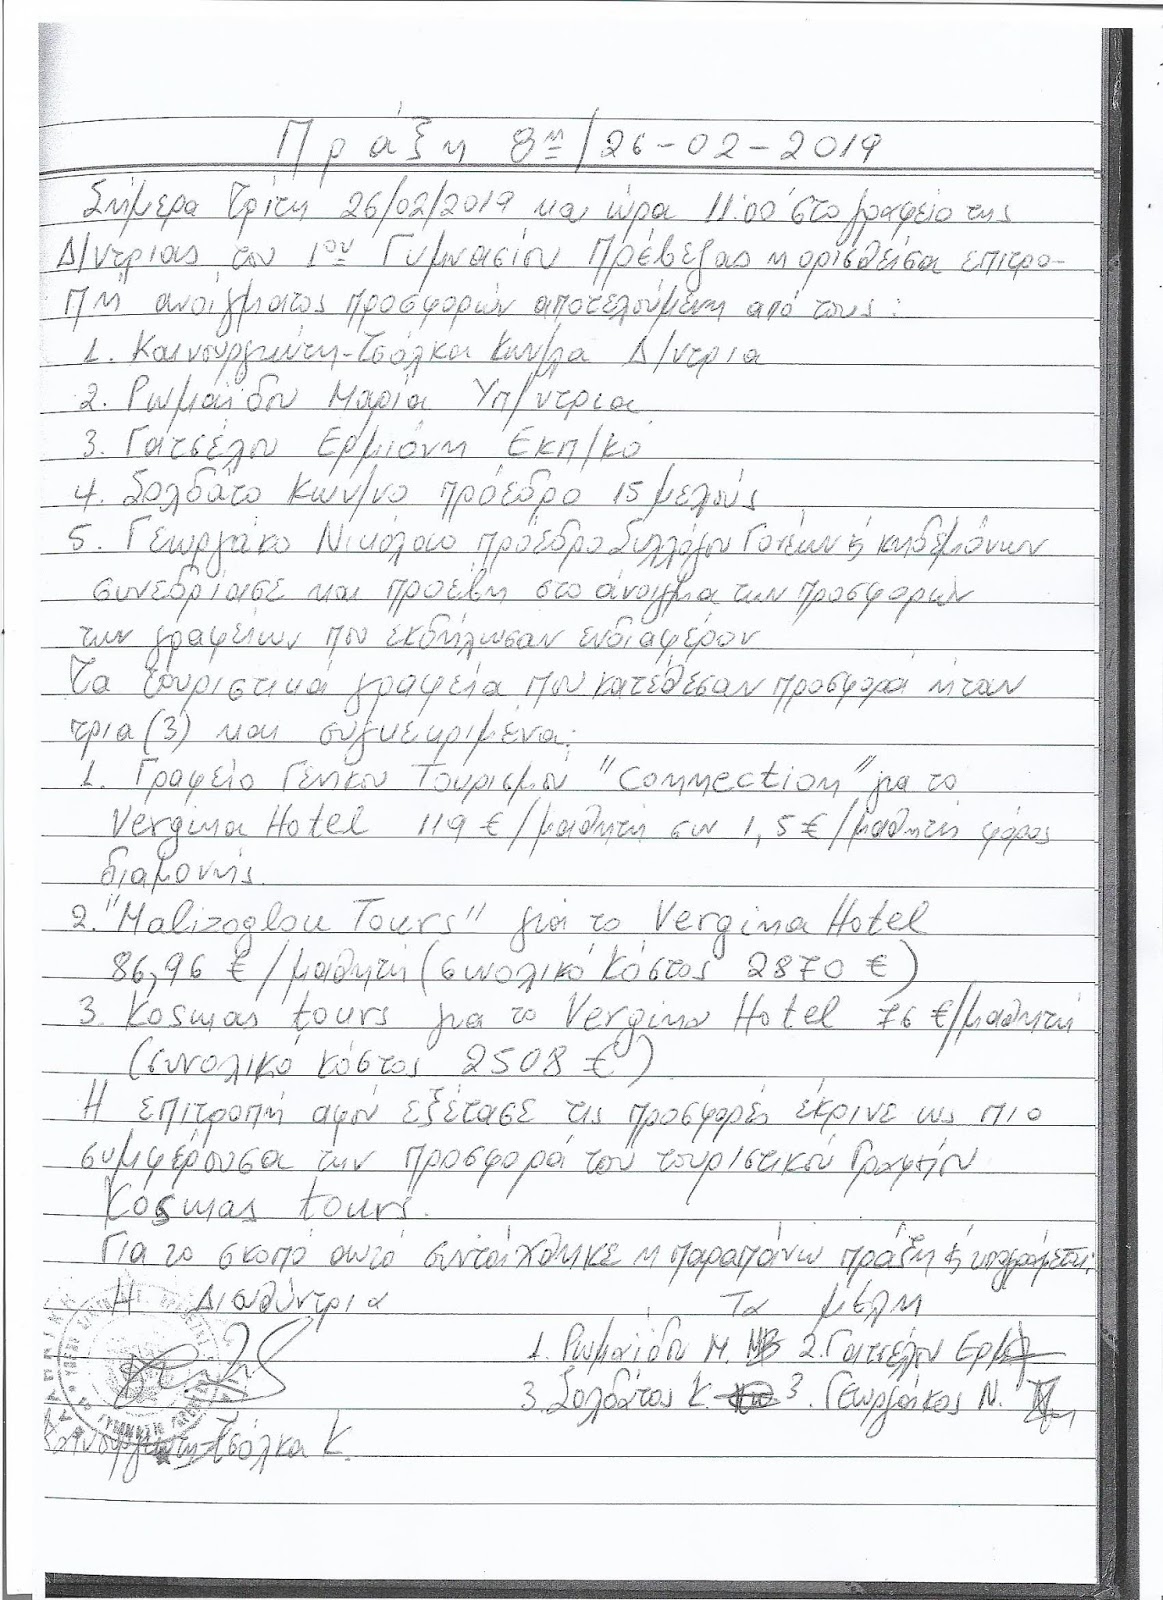 Πράξη 8η/26-02-2019
Σήμερα Τρίτη 26/02/2019 και ώρα 11:00 στο γραφείο της
Δ/ντριας του 1ου Γυμνασίου Πρέβεζας η ορισθείσα επιτρο-
πή ανοίγματος προσφορών αποτελούμενη από τους:
1. Καινουργιώτη-Τσόλκα Κων/να Δ/ντρια
2. Ρωμαΐδου Μαρία Υπ/ντρια
3. Γατσέλου Ερμιόνη Εκπ/κό
4. Σολδάτο Κων/νο πρόεδρο 15μελούς
5. Γεωργάκο Νικόλαο πρόεδρο Συλλόγου Γονέων & κηδεμόνων
συνεδρίασε και προέβη στο άνοιγμα των προσφορών
των γραφείων που εκδήλωσαν ενδιαφέρον
Τα τουριστικά γραφεία που κατέθεσαν προσφορά ήταν
τρία (3) και συγκεκριμένα:
1. Γραφείο Γενικού Τουρισμού "Connection" για το
Vergina Hotel 119 €/μαθητή συν 1,5€/μαθητή φόρος
διαμονής.
2. "Malizoglou Tours" για το Vergina Hotel
86,96 €/μαθητή (συνολικό κόστος 2870 €)
3. Kosmas tours για το Vergina Hotel 76 €/μαθητή
(συνολικό κόστος 2508 €)
Η επιτροπή αφού εξέτασε τις προσφορές έκρινε ως πιο
συμφέρουσα την προσφορά του τουριστικού Γραφείου
Kosmas tours.
Για το σκοπό αυτό συντάχθηκε η παραπάνω πράξη & υπογράφεται.
Η Διευθύντρια Τα μέλη
1. Ρωμαΐδου Μ. 2. Γατσέλου Ερμ
3. Σολδάτος Κ 3. Γεωργάκος Ν.
Καινουργιώτη-Τσόλκα Κ.